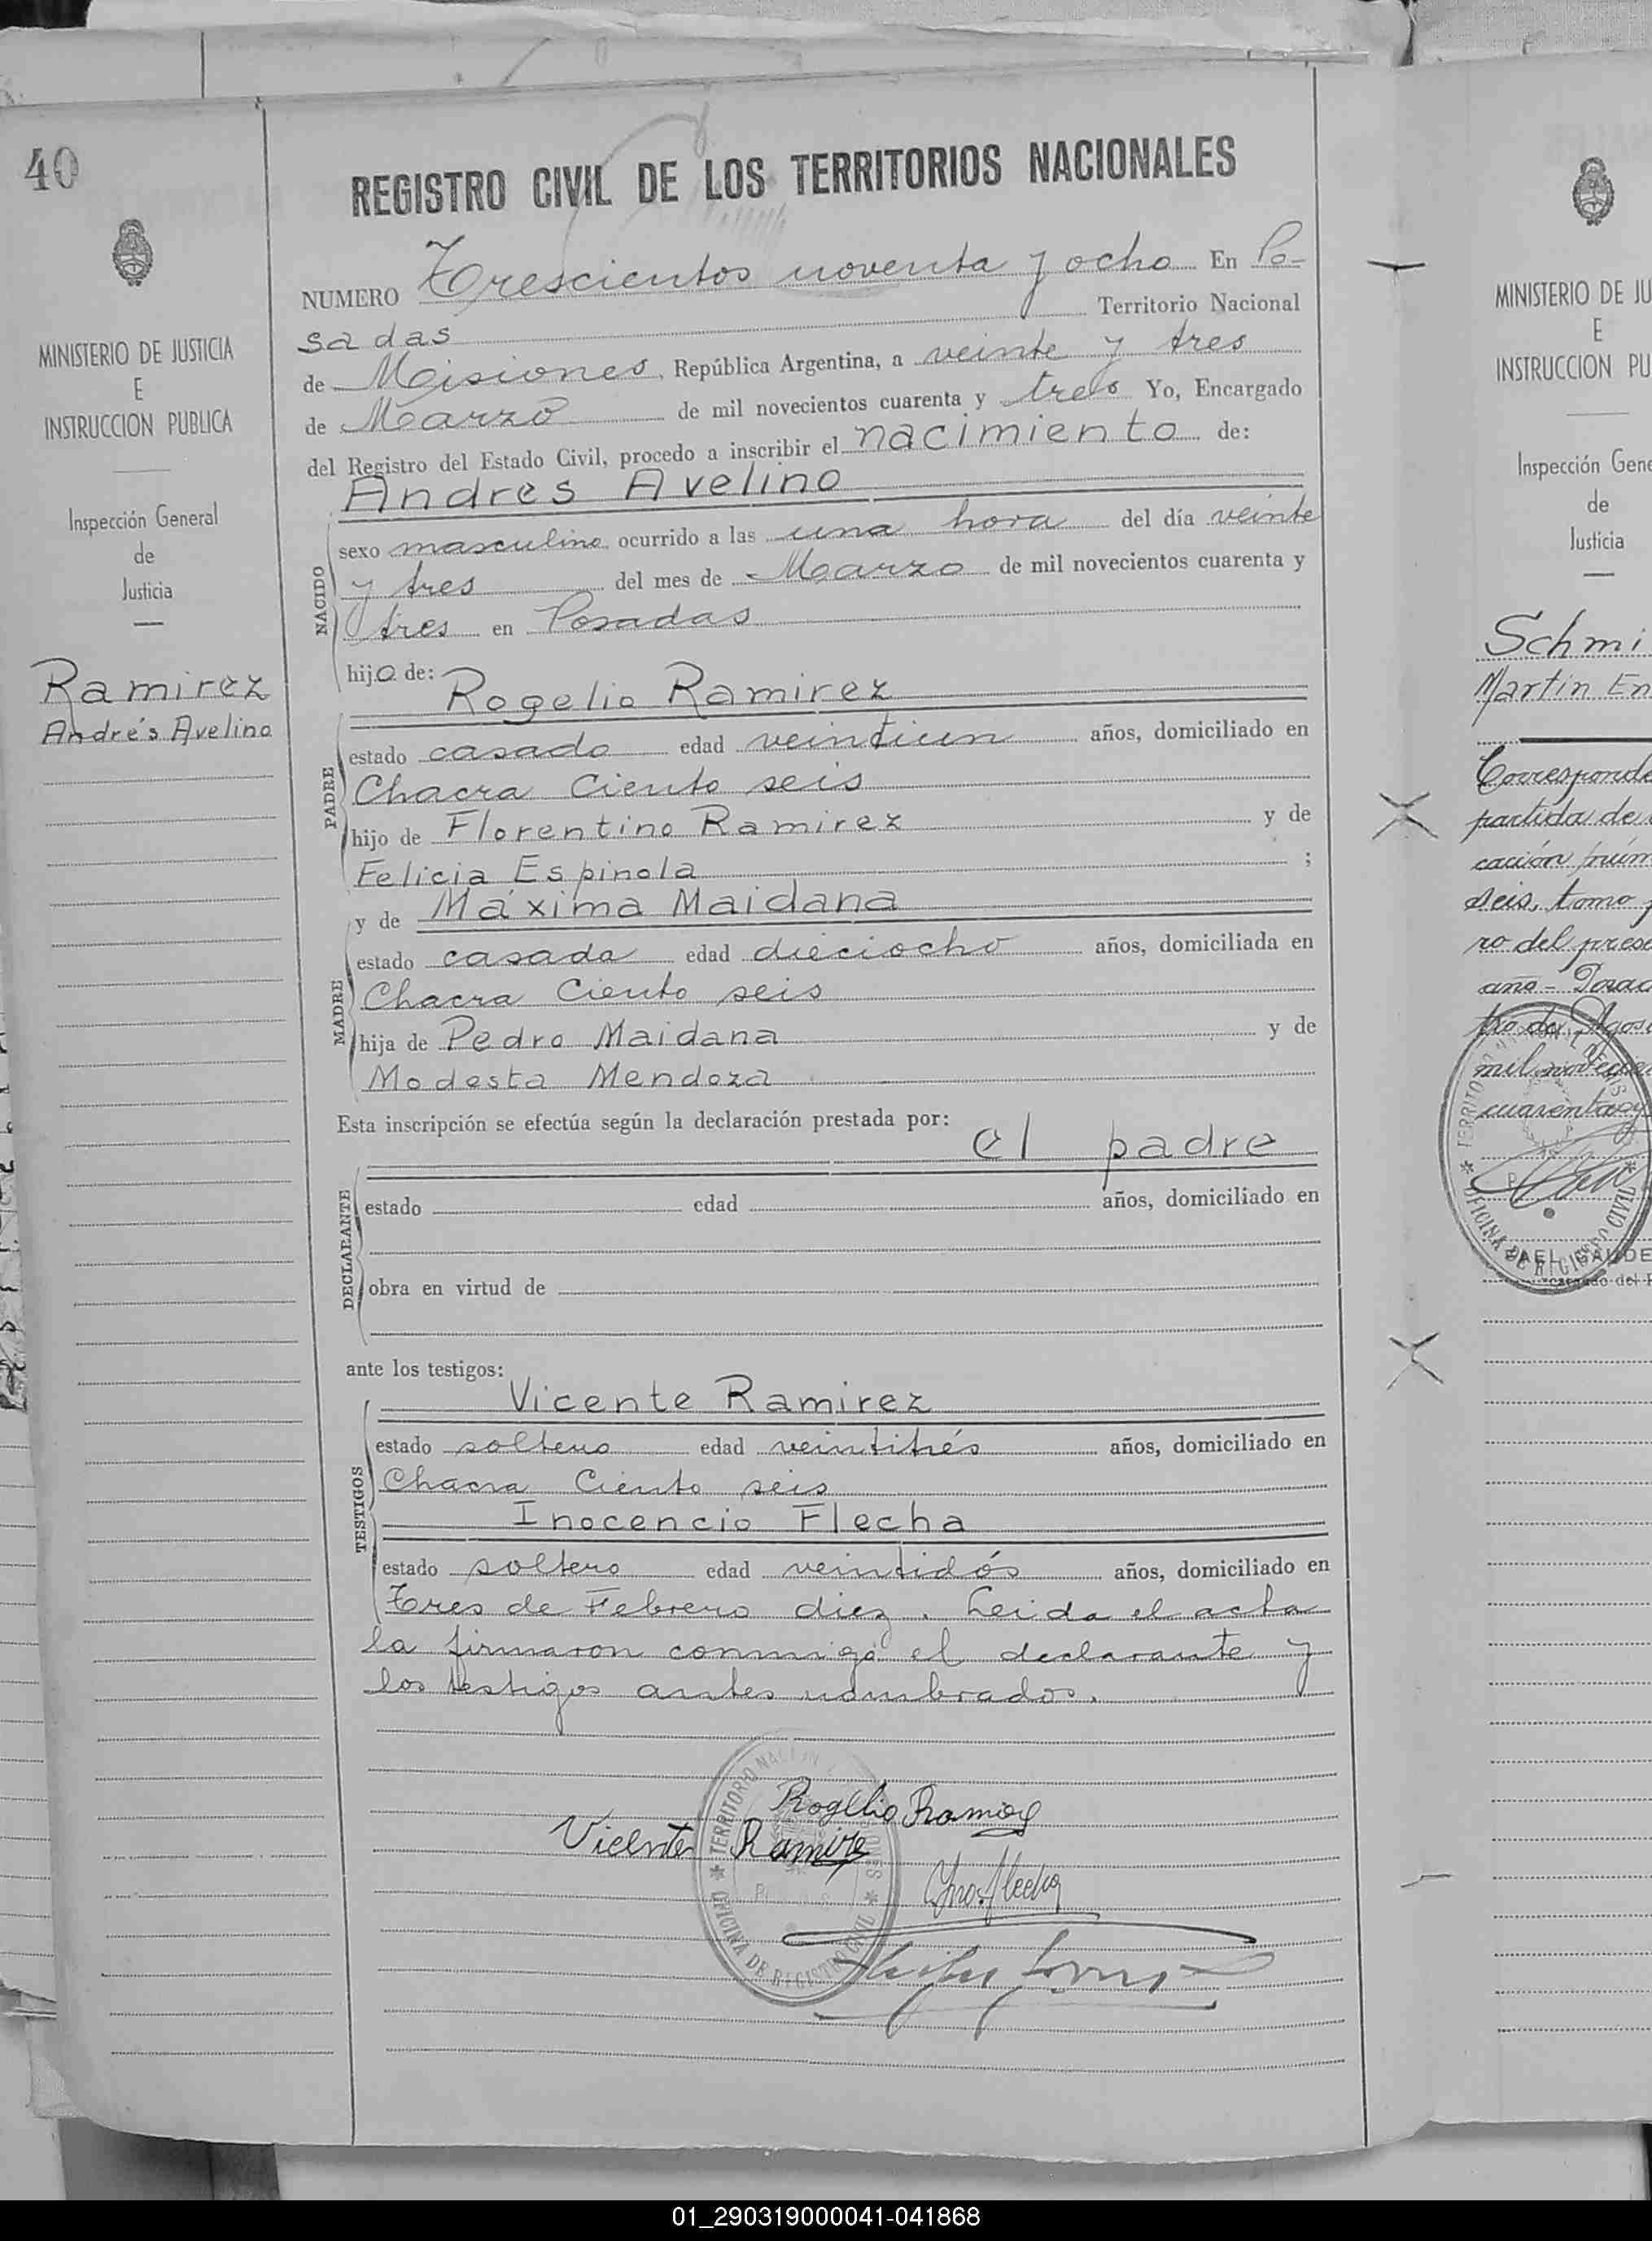 40
MINISTERIO DE JUSTICIA
E
INSTRUCCION PUBLICA
Inspección General
de
Justicia
Ramirez
Andrés Avelino
REGISTRO CIVIL DE LOS TERRITORIOS NACIONALES
NUMERO Trescientos noventa y ocho En Po-
sadas Territorio Nacional
de Misiones, República Argentina, a veinte y tres
de Marzo de mil novecientos cuarenta y tres Yo, Encargado
del Registro del Estado Civil, procedo a inscribir el nacimiento de:
Andres Avelino
NACIDO
sexo masculino ocurrido a las una hora del día veinte
y tres del mes de Marzo de mil novecientos cuarenta y
tres en Posadas
hijo de:
Rogelio Ramirez
PADRE
estado casado edad veintiun años, domiciliado en
Chacra Ciento seis
hijo de Florentino Ramirez y de
Felicia Espinola ;
y de Máxima Maidana
MADRE
estado casada edad dieciocho años, domiciliada en
Chacra Ciento seis
hija de Pedro Maidana y de
Modesta Mendoza
Esta inscripción se efectúa según la declaración prestada por:
el padre
DECLARANTE
estado edad años, domiciliado en
obra en virtud de
ante los testigos:
Vicente Ramirez
TESTIGOS
estado soltero edad veintitrés años, domiciliado en
Chacra Ciento seis
Inocencio Flecha
estado soltero edad veintidós años, domiciliado en
Tres de Febrero diez. Leida el acta
la firmaron conmigo el declarante y
los testigos antes nombrados.
Rogelio Ramirez
Vicente Ramirez
TERRITORIO NACIONAL DE MISIONES
OFICINA DE REGISTRO CIVIL
MINISTERIO DE JU
E
INSTRUCCION PU
Inspección Gene
de
Justicia
Schmi
Martin En
Corresponde
partida de
cación núm
seis, tomo
ro del prese
año -
de Agos
mil novecie
cuarenta y
TERRITORIO
OFICINA DE REGISTRO CIVIL
01_290319000041-041868